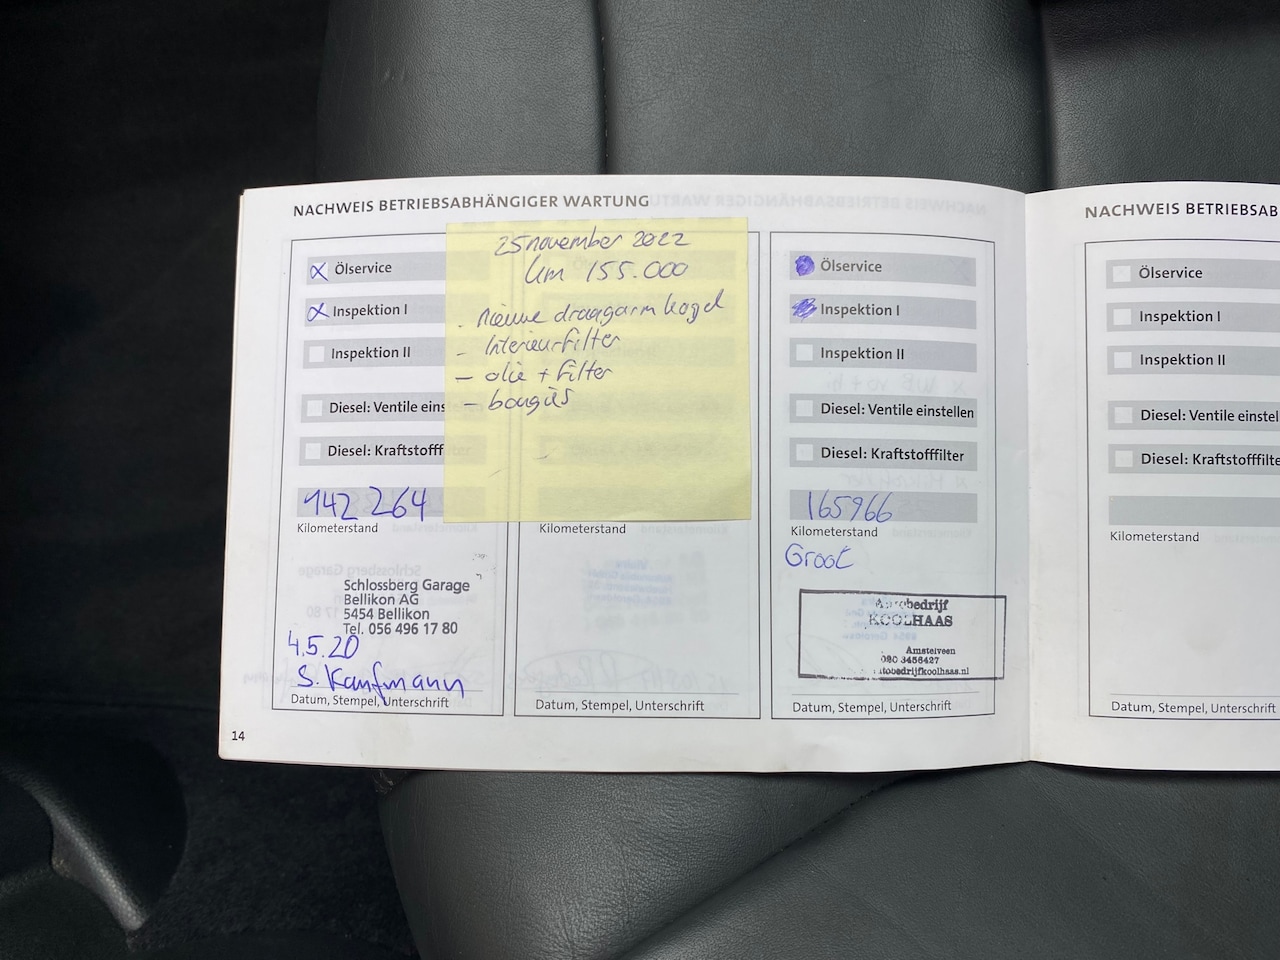 NACHWEIS BETRIEBSABHÄNGIGER WARTUNG
Ölservice
Inspektion I
Inspektion II
Diesel: Ventile eins
Diesel: Kraftstofff
142 264
Kilometerstand
Schlossberg Garage
Bellikon AG
5454 Bellikon
Tel. 056 496 17 80
4.5.20
S. Kaufmann
Datum, Stempel, Unterschrift
14
25 november 2022
km 155.000
- nieuwe draagarm kogel
- Interieurfilter
- olie + filter
- bougies
Kilometerstand
Datum, Stempel, Unterschrift
Ölservice
Inspektion I
Inspektion II
Diesel: Ventile einstellen
Diesel: Kraftstofffilter
165966
Kilometerstand
Groot
Autobedrijf
KOOLHAAS
Amstelveen
020 3456427
autobedrijfkoolhaas.nl
Datum, Stempel, Unterschrift
NACHWEIS BETRIEBSAB
Ölservice
Inspektion I
Inspektion II
Diesel: Ventile einstel
Diesel: Kraftstofffilte
Kilometerstand
Datum, Stempel, Unterschrift